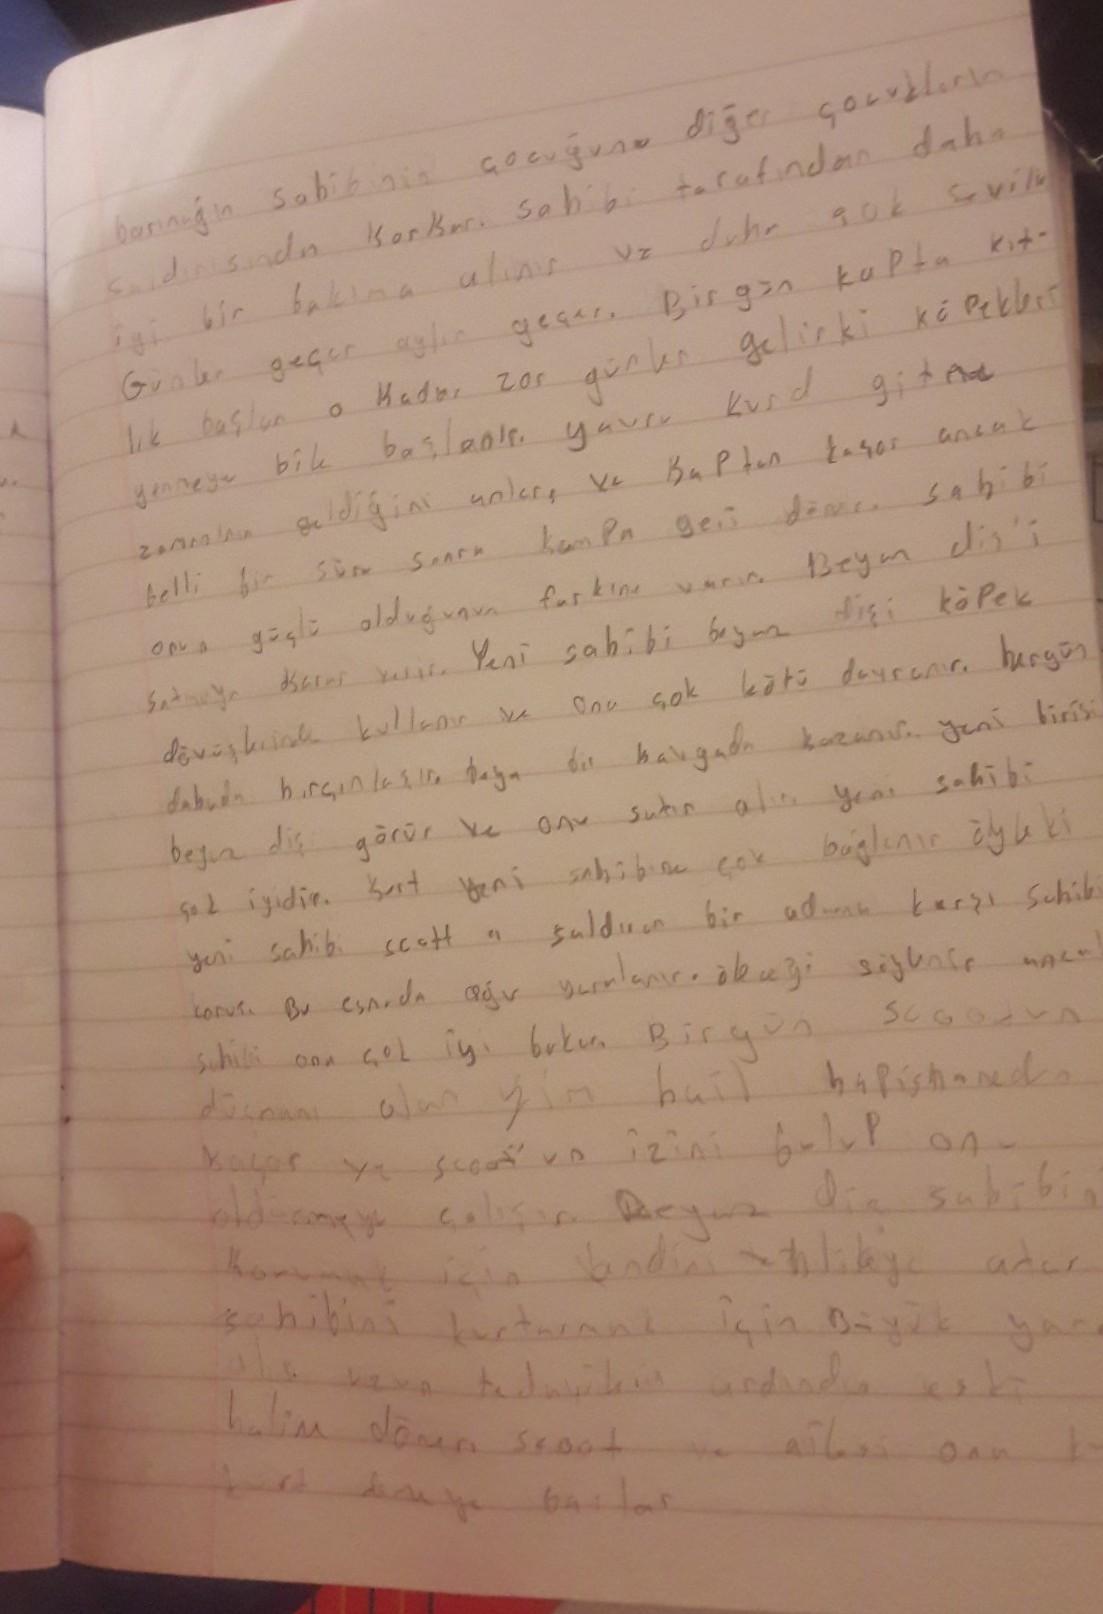 barınağın sahibinin çocuğunu diğer çocukların
saldırısından korkar. sahibi tarafından daha
iyi bir bakıma alınır ve daha çok sevilir
Günler geçer aylar geçer. Bir gün kapta kıt-
lık başlar o kadar zor günler gelirki köpekleri
yenmeye bile başlanır. yavru kurd gitme
zamanının geldiğini anlar, ve kaptan kaçar ancak
belli bir süre sonra kampa geri döner. sahibi
onun güçlü olduğunun farkına varır. Beyaz diş'i
satmaya karar verir. Yeni sahibi beyaz dişi köpek
dövüşlerinde kullanır ve ona çok kötü davranır. hergün
dahada hırçınlaşır. bir kavgada kazanır. yeni birisi
beyaz diş görür ve onu satın alır yeni sahibi
çok iyidir. kurt yeni sahibine çok bağlanır öyleki
yeni sahibi scott a saldıran bir adama karşı sahibi
korur. Bu esnada ağır yaralanır. öleceği söylenir ancak
sahibi ona çok iyi bakar. Birgün scoodun
düşmanı olan yim hail hapishaneden
kaçar ve izini bulup onu
öldürmeye çalışır. Beyaz diş sahibini
korumak için kendini tehlikeye atar
sahibini kurtarmak için Büyük yara
alır uzun tedavilerin ardından eski
haline döner scoot ve ailesi ona
kurt demeye başlar